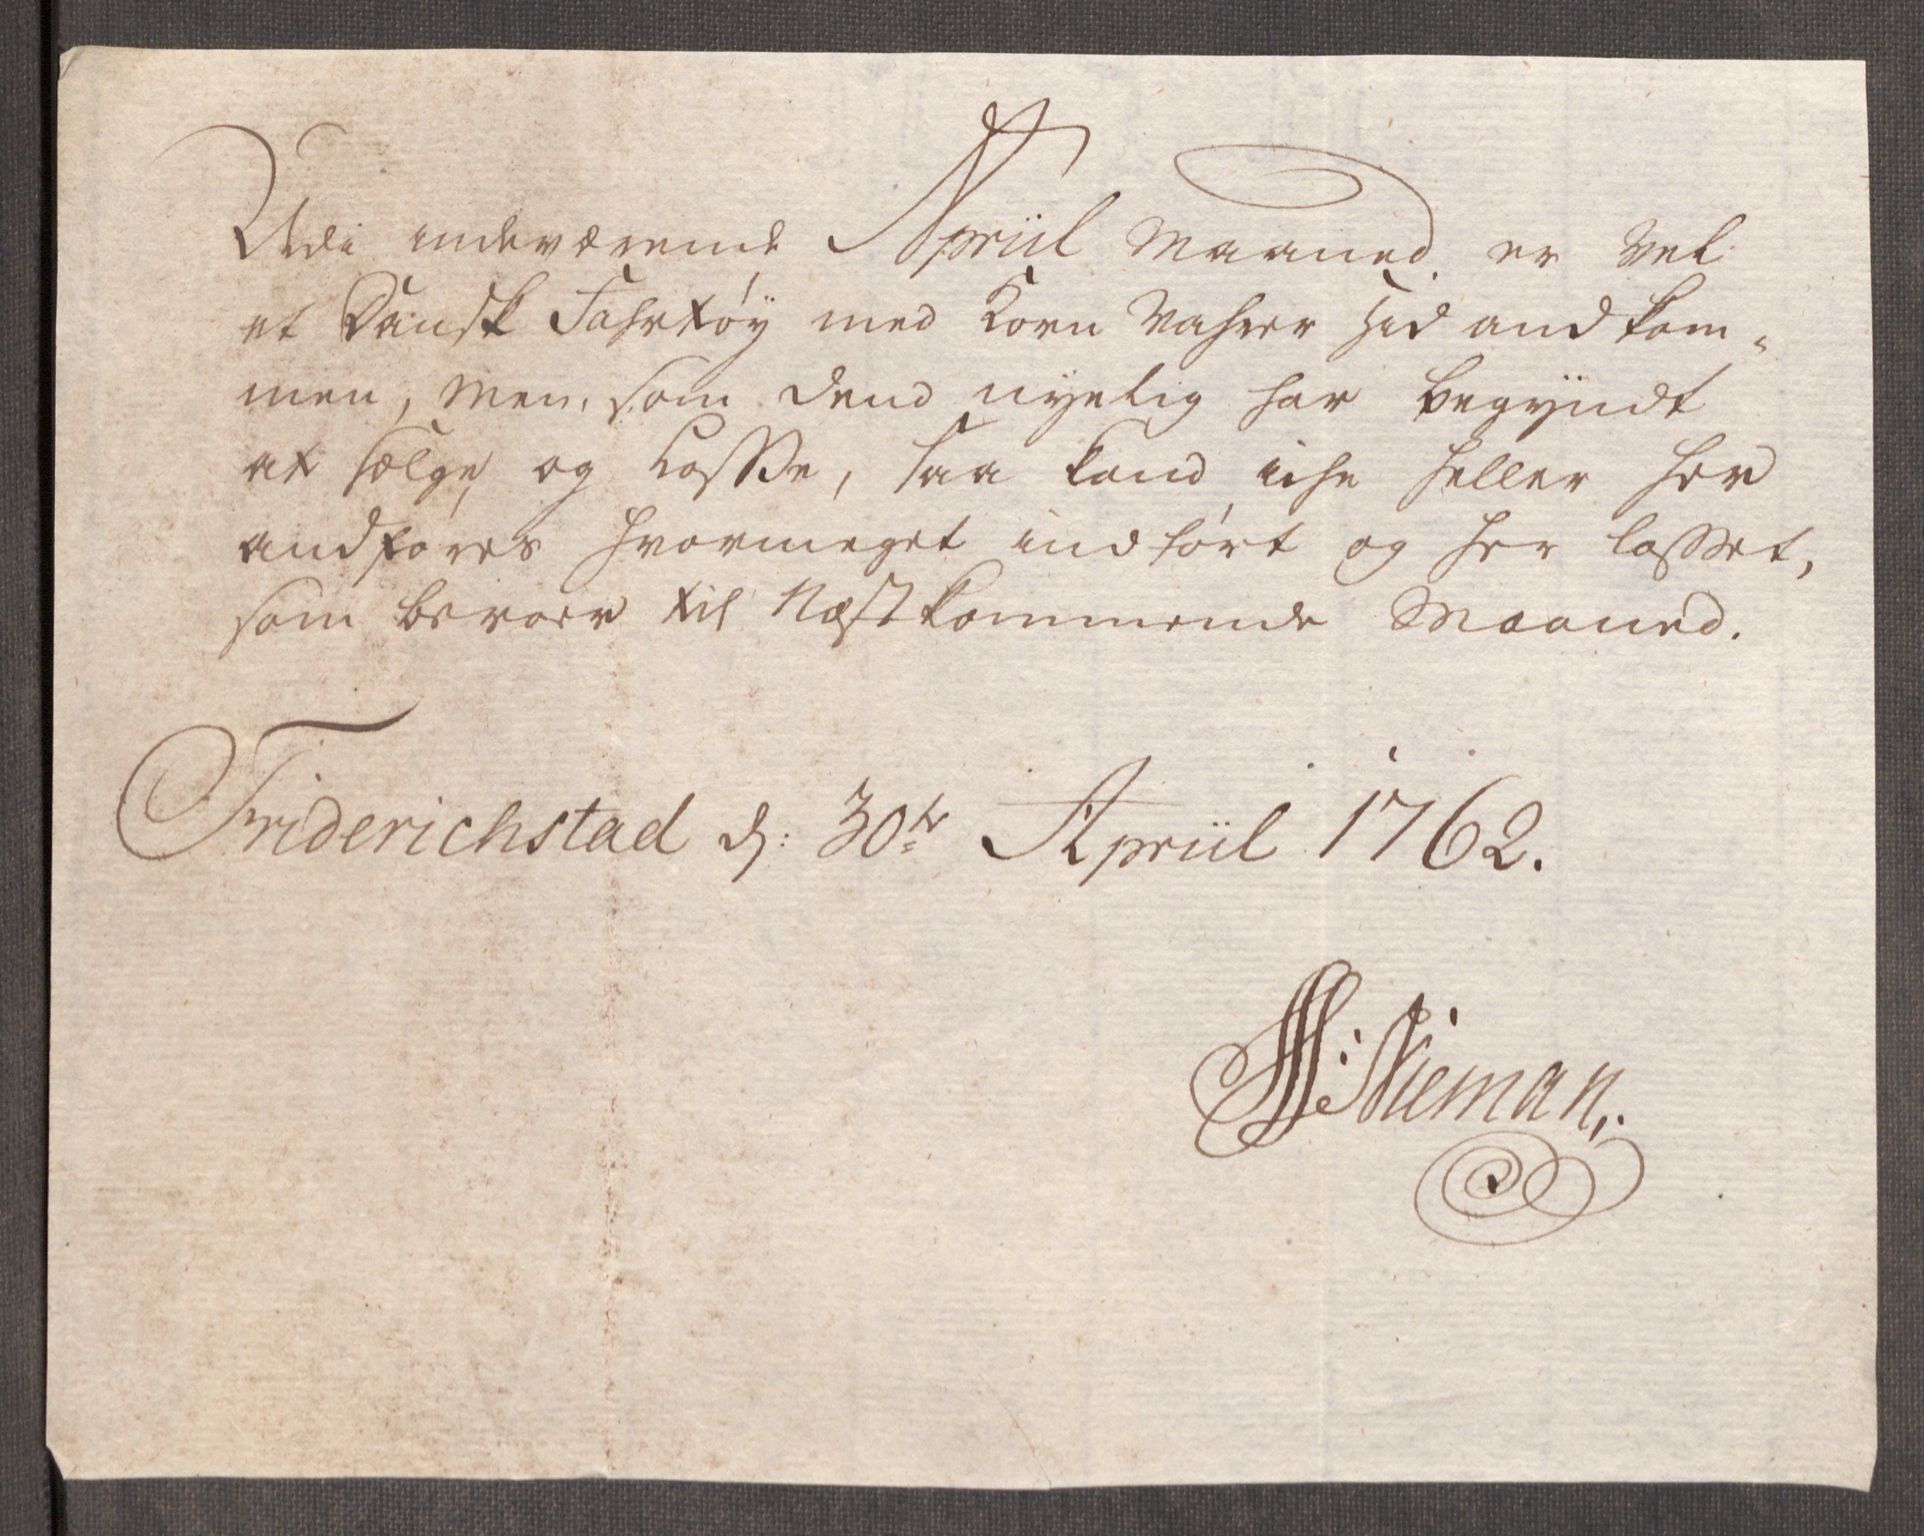 Udi indeværende Apriil Maaned er vel
et Dansk Fahrtöy med Korn Vahrer hid and kom-
men, Men, som dend nyelig har begyndt
at sælge og Losse, saa kand iche heller her
andföres hvormeget indfört og her losset,
som beroer til Næstkommende Maaned.
Friderichstad d: 30te Apriil 1762.
Nieman,.